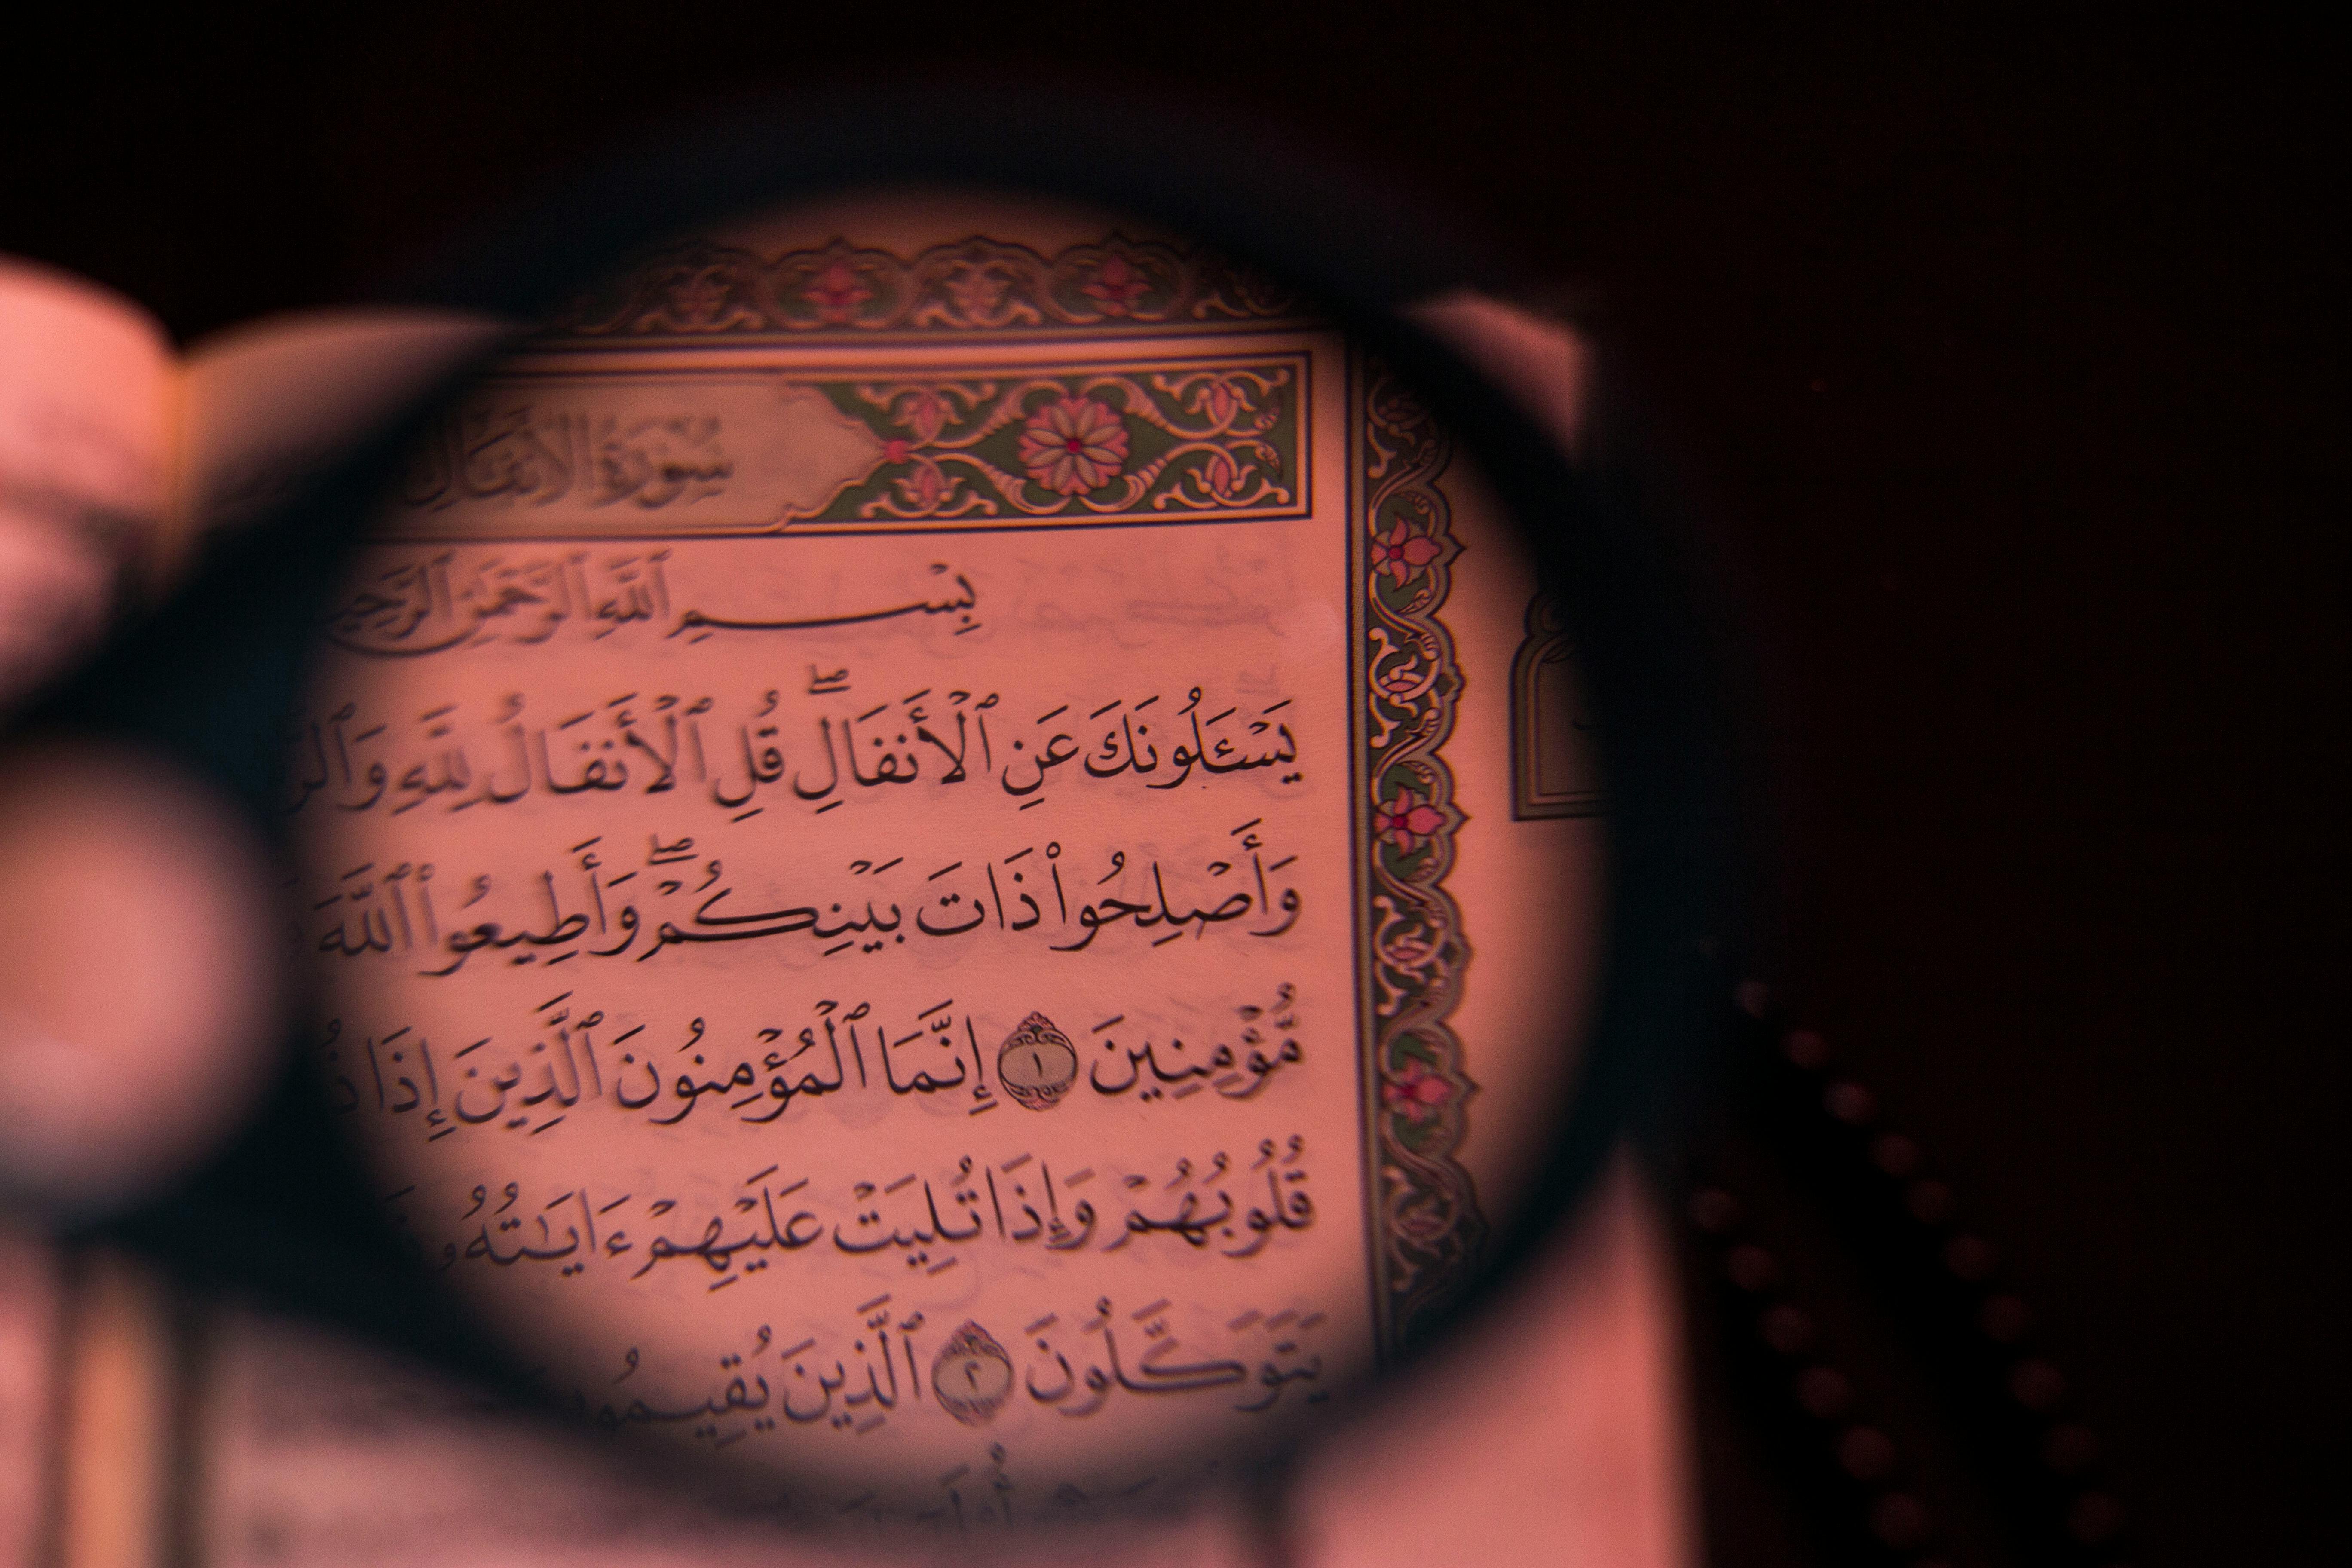 سُورَةُ الأَنفَالِ
بِسْمِ ٱللَّهِ ٱلرَّحْمَٰنِ ٱلرَّحِيمِ
يَسْـَٔلُونَكَ عَنِ ٱلْأَنفَالِۖ قُلِ ٱلْأَنفَالُ لِلَّهِ
وَأَصْلِحُوا۟ ذَاتَ بَيْنِكُمْۖ وَأَطِيعُوا۟ ٱللَّهَ
مُّؤْمِنِينَ ١ إِنَّمَا ٱلْمُؤْمِنُونَ ٱلَّذِينَ إِذَا
قُلُوبُهُمْ وَإِذَا تُلِيَتْ عَلَيْهِمْ ءَايَـٰتُهُۥ
يَتَوَكَّلُونَ ٢ ٱلَّذِينَ